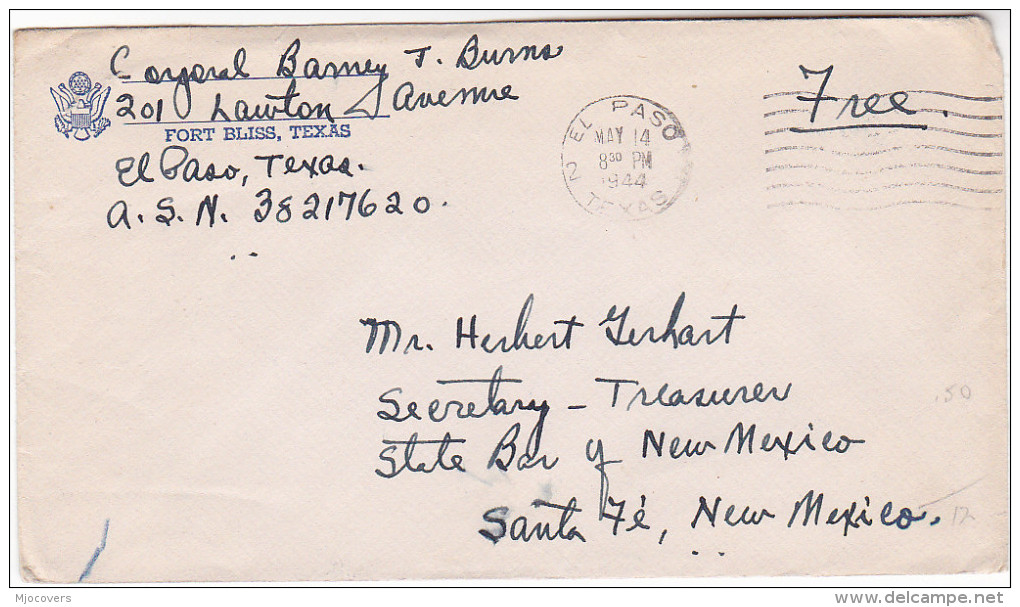 Corporal Barney T. Burns
201 Lawton Avenue
FORT BLISS, TEXAS
El Paso, Texas.
A. S. N. 38217620.
EL PASO
MAY 14
8 30 PM
1944
2
TEXAS
Free.
Mr. Herbert Gerhart
Secretary - Treasurer
State Bar of New Mexico
Santa Fé, New Mexico.
.50
12
Mjocovers
delcampe.net